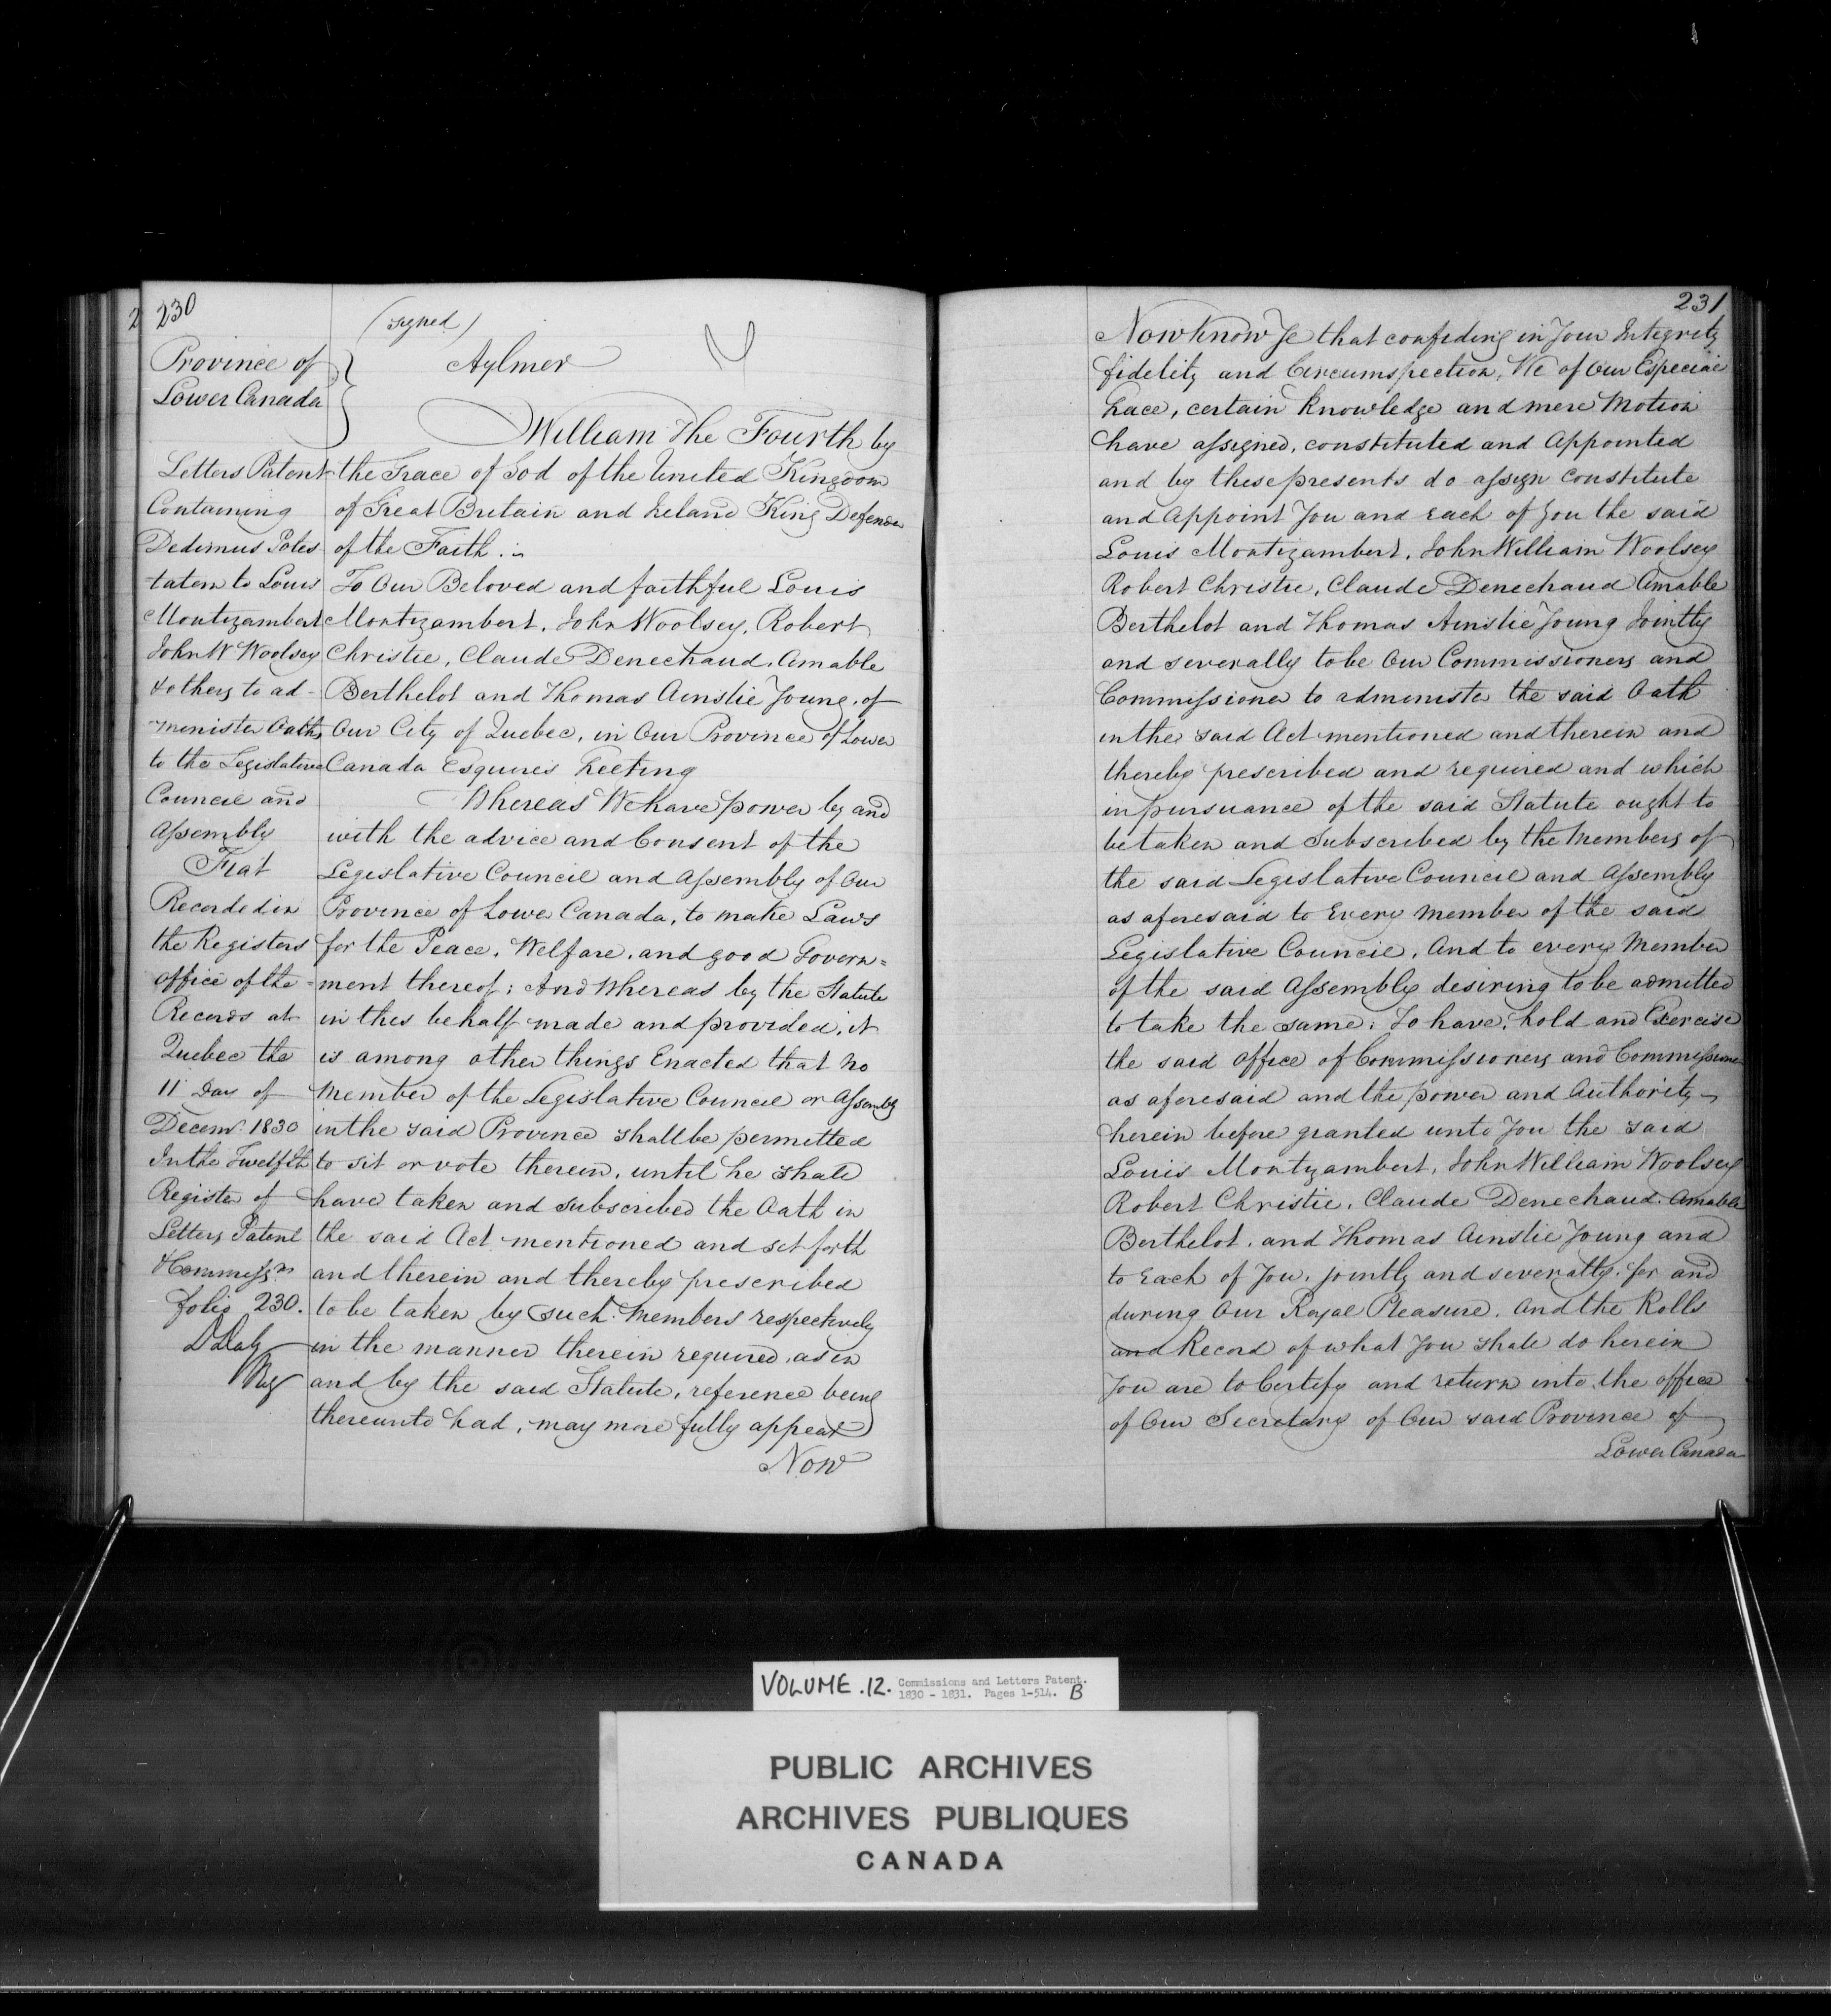 2 230
(signed)
Aylmer
Province of
Lower Canada
William The Fourth by
the Grace of God of the United Kingdom
of Great Britain and Ireland King Defender
of the Faith.
To Our Beloved and faithful Louis
Montizambert, John Woolsey, Robert
Christie, Claude Denechaud, Amable
Berthelot and Thomas Ainslie Young, of
Our City of Quebec, in Our Province of Lower
Canada Esquires Greeting
Whereas We have power by and
with the advice and Consent of the
Legislative Council and Assembly of Our
Province of Lower Canada, to make Laws
for the Peace, Welfare, and good Govern=
ment thereof; And Whereas by the Statute
in this behalf made and provided, it
is among other things Enacted that no
Member of the Legislative Council or Assembly
in the said Province shall be permitted
to sit or vote therein, until he shall
have taken and subscribed the Oath in
the said Act mentioned and set forth
and therein and thereby prescribed
to be taken by such Members respectively
in the manner therein required, as in
and by the said Statute, reference being
thereunto had, may more fully appear
Now
Letters Patent
Containing
Dedimus Potes
tatem to Louis
Montizambert
John W Woolsey
& others to ad-
minister Oaths
to the Legislative
Council and
Assembly
Fiat
Recorded in
the Registers
Office of the
Records at
Quebec the
11 Day of
Decemr. 1830
In the Twelfth
Register of
Letters Patent
& Commissns
folio 230.
D Daly
Reg
231
Now Know Ye that confiding in Your Integrity
fidelity and Circumspection, We of Our Especial
Grace, certain knowledge and mere Motion
have assigned, constituted and Appointed
and by these presents do assign constitute
and Appoint You and each of you the said
Louis Montizambert, John William Woolsey
Robert Christie, Claude Denechaud Amable
Berthelot and Thomas Ainslie Young Jointly
and severally to be Our Commissioners and
Commissioner to administer the said Oath
in the said Act mentioned and therein and
thereby prescribed and required and which
in pursuance of the said Statute ought to
be taken and Subscribed by the Members of
the said Legislative Council and Assembly
as aforesaid to Every Member of the said
Legislative Council, And to every Member
of the said Assembly desiring to be admitted
to take the same; To have, hold and Exercise
the said Office of Commissioners and Commissioner
as aforesaid and the power and Authority
herein before granted unto You the said
Louis Montizambert, John William Woolsey
Robert Christie, Claude Denechaud. Amable
Berthelot, and Thomas Ainslie Young and
to Each of You, jointly and severally, for and
during Our Royal Pleasure. And the Rolls
and Record of what You shall do herein
You are to Certify and return into the office
of Our Secretary of Our said Province of
Lower Canada
VOLUME .12. Commissions and Letters Patent.
1830 - 1831. Pages 1-514. B
PUBLIC ARCHIVES
ARCHIVES PUBLIQUES
CANADA